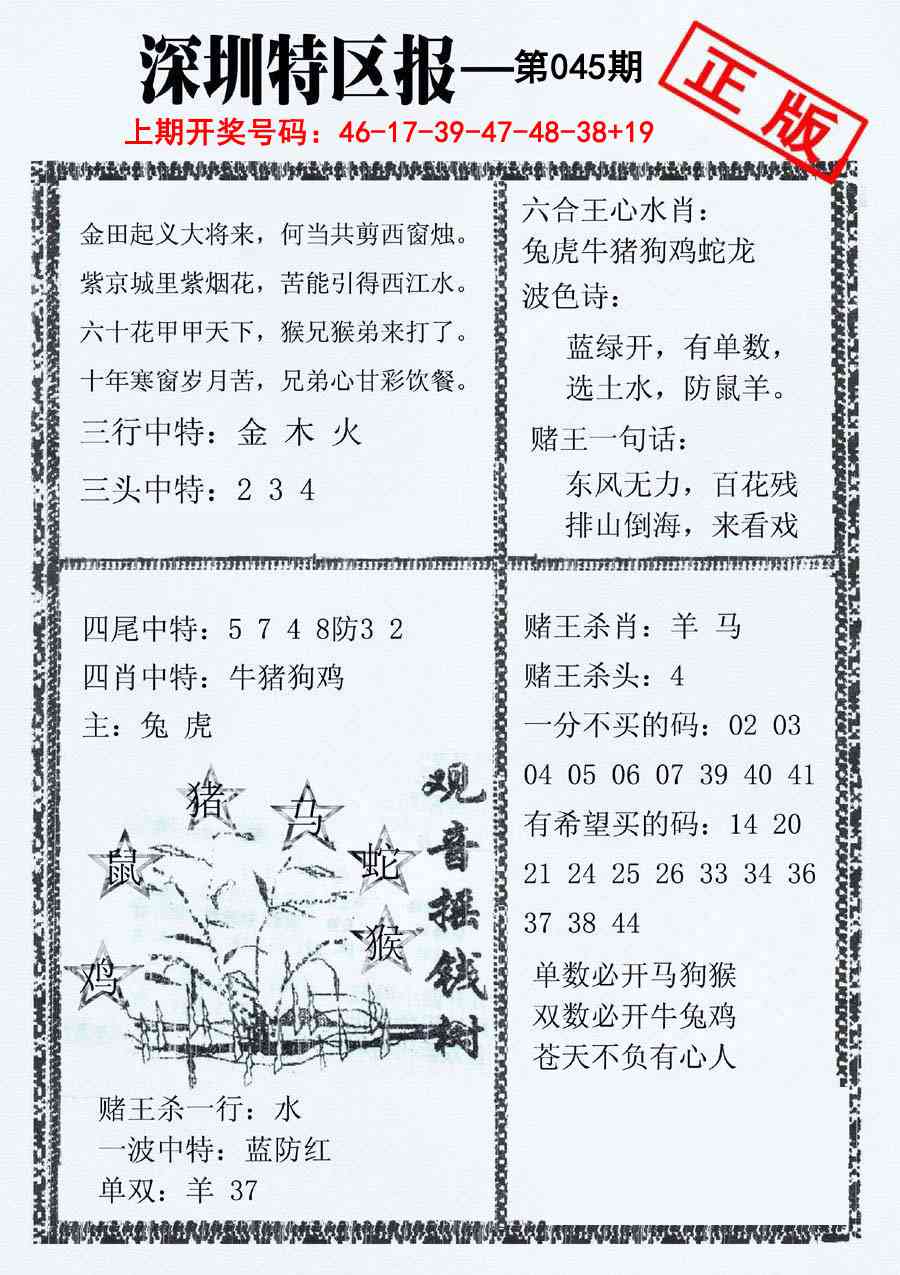 深圳特区报——第045期
正版
上期开奖号码：46-17-39-47-48-38+19
金田起义大将来，何当共剪西窗烛。
紫京城里紫烟花，苦能引得西江水。
六十花甲甲天下，猴兄猴弟来打了。
十年寒窗岁月苦，兄弟心甘彩饮餐。
三行中特：金 木 火
三头中特：2 3 4
六合王心水肖：
兔虎牛猪狗鸡蛇龙
波色诗：
蓝绿开，有单数，
选土水，防鼠羊。
赌王一句话：
东风无力，百花残
排山倒海，来看戏
四尾中特：5 7 4 8防3 2
四肖中特：牛猪狗鸡
主：兔 虎
猪
马
鼠
蛇
猴
鸡
观音摇钱树
赌王杀一行：水
一波中特：蓝防红
单双：羊 37
赌王杀肖：羊 马
赌王杀头：4
一分不买的码：02 03
04 05 06 07 39 40 41
有希望买的码：14 20
21 24 25 26 33 34 36
37 38 44
单数必开马狗猴
双数必开牛兔鸡
苍天不负有心人